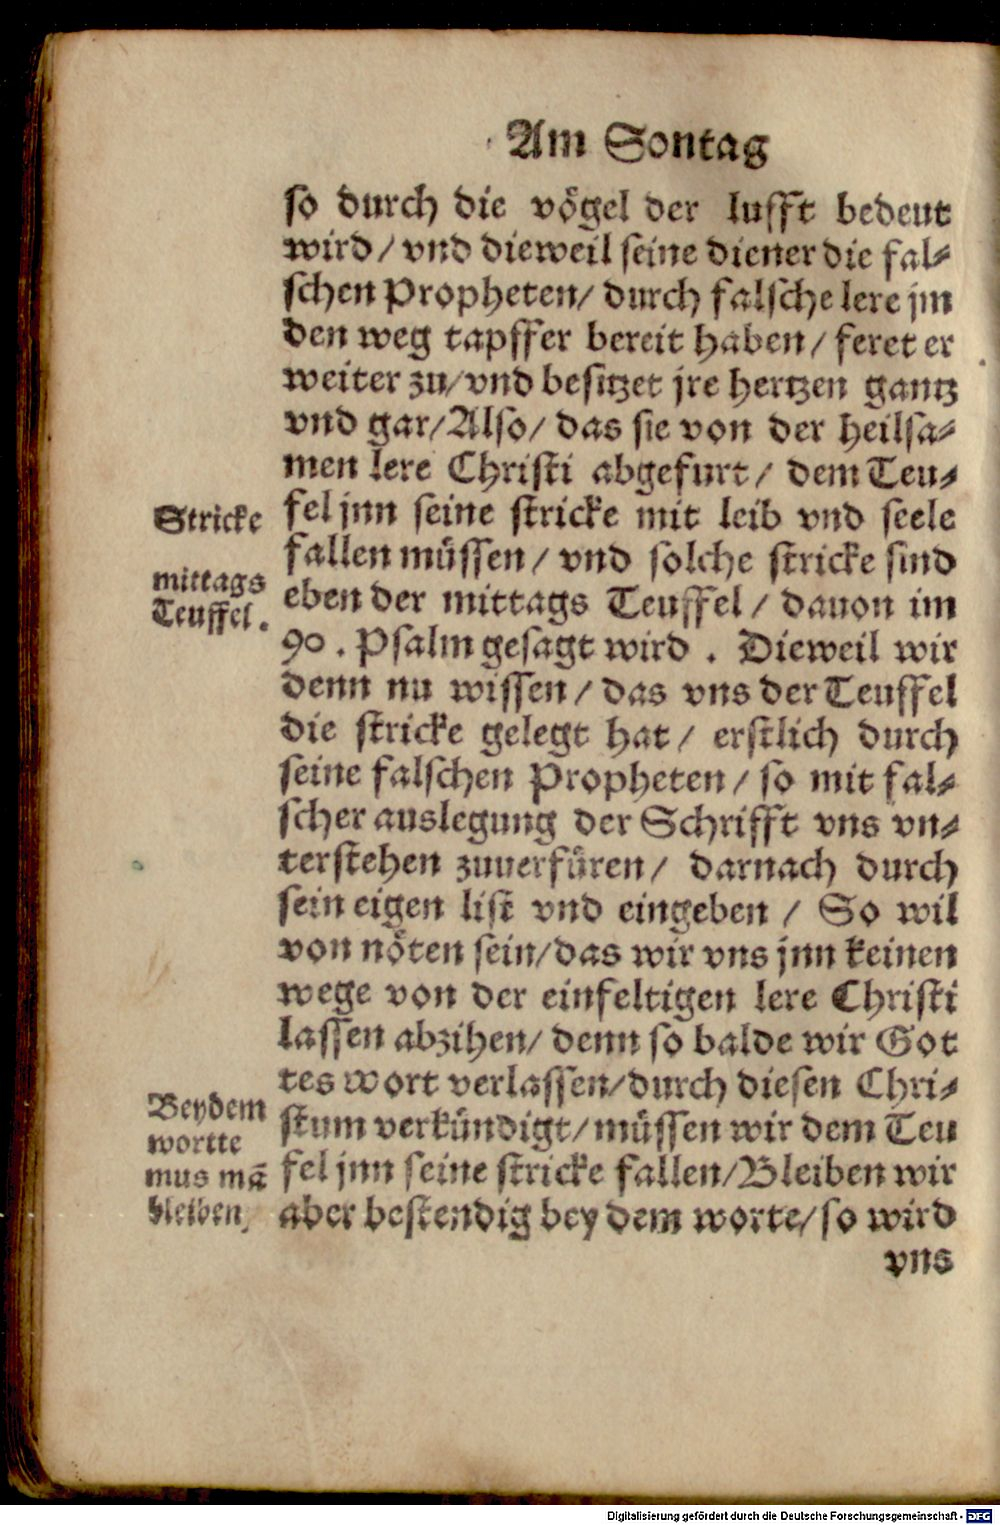 Am Sontag
so durch die vögel der lufft bedeut
wird/ vnd dieweil seine diener die fal⸗
schen Propheten/ durch falsche lere jm
den weg tapffer bereit haben/ feret er
weiter zu/ vnd besitzet jre hertzen gantz
vnd gar/ Also/ das sie von der heilsa⸗
men lere Christi abgefurt/ dem Teu⸗
fel jnn seine stricke mit leib vnd seele
fallen müssen/ vnd solche stricke sind
eben der mittags Teuffel/ dauon im
90. Psalm gesagt wird. Dieweil wir
denn nu wissen/ das vns der Teuffel
die stricke gelegt hat/ erstlich durch
seine falschen Propheten/ so mit fal⸗
scher auslegung der Schrifft vns vn⸗
terstehen zuuerfüren/ darnach durch
sein eigen list vnd eingeben/ So wil
von nöten sein/ das wir vns jnn keinen
wege von der einfeltigen lere Christi
lassen abzihen/ denn so balde wir Got
tes wort verlassen/ durch diesen Chri⸗
stum verkündigt/ müssen wir dem Teu
fel jnn seine stricke fallen/ Bleiben wir
aber bestendig bey dem worte/ so wird
vns
Stricke
mittags
Teuffel.
Bey dem
wortte
mus mã
bleiben,
Digitalisierung gefördert durch die Deutsche Forschungsgemeinschaft - DFG